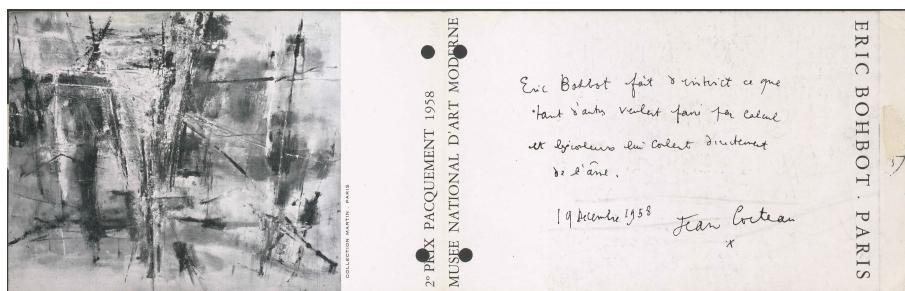 COLLECTION MARTIN . PARIS
2º PRIX PACQUEMENT 1958
MUSEE NATIONAL D'ART MODERNE
Eric Bohbot fait d'instinct ce que
tant d'autres veulent faire par calcul
et les couleurs lui coulent directement
de l'âme.
19 Décembre 1958
Jean Cocteau
ERIC BOHBOT . PARIS